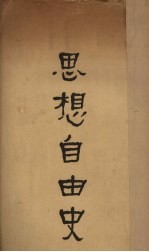 思想自由史